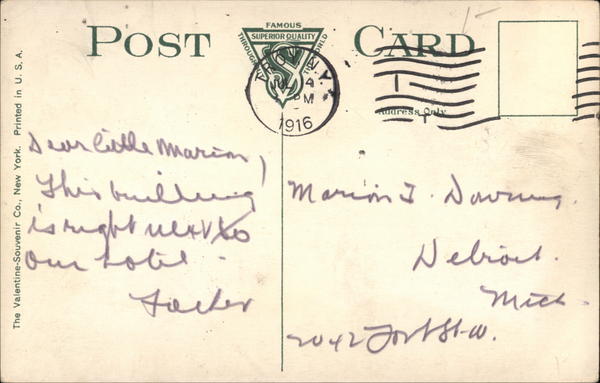 POST CARD
FAMOUS
SUPERIOR QUALITY
THROUGHOUT THE WORLD
VS
TROY, N.Y.
JUL 4
PM
1916
Address Only
The Valentine-Souvenir Co., New York. Printed in U. S. A.
Dear little Marion,
This building
is right next to
our hotel.
Father
Marion I. Downing.
Detroit.
Mich.
2042 Fort St. W.